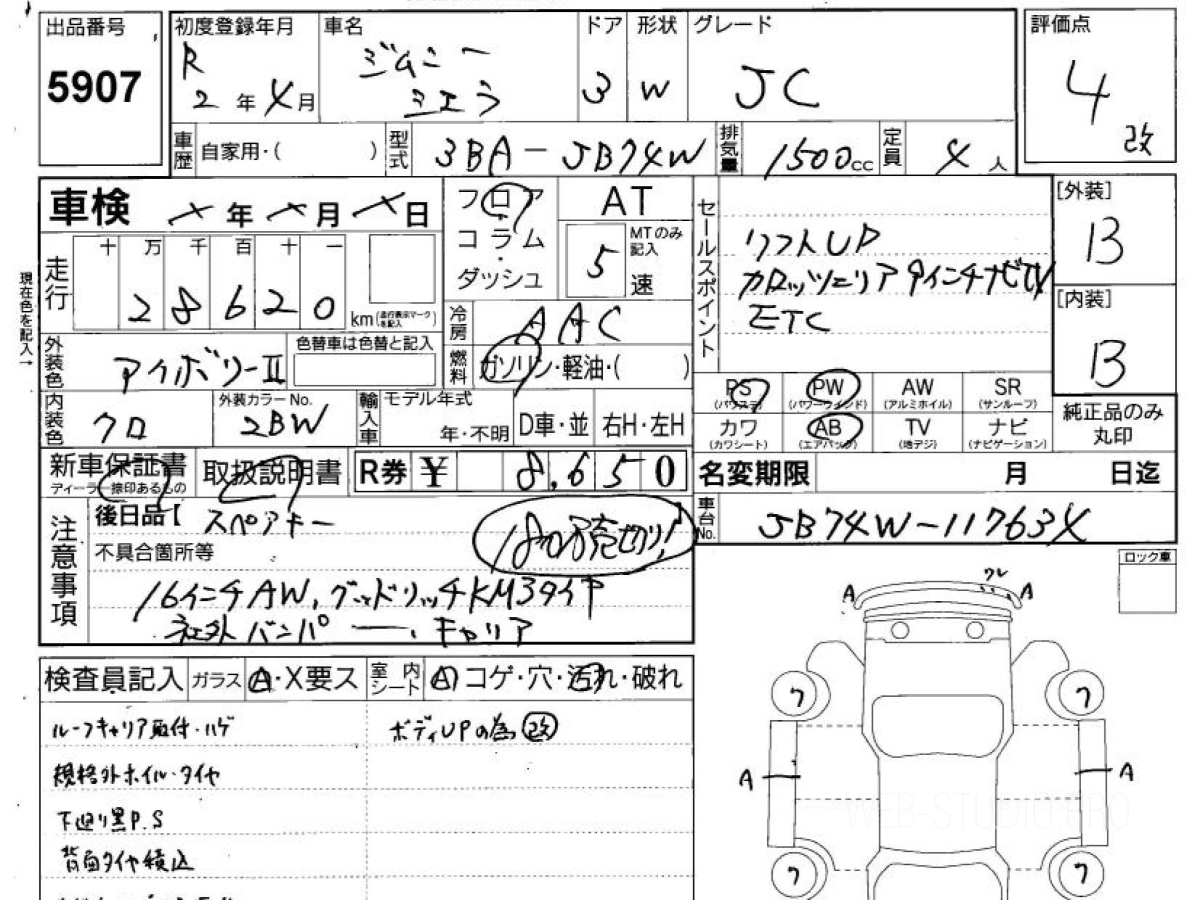 出品番号
5907
初度登録年月
R
2 年 4 月
車名
ジムニー
シエラ
ドア
3
形状
W
グレード
JC
評価点
4
改
車歴
自家用・( )
型式
3BA-JB74W
排気量
1500cc
定員
4 人
車検
年 月 日
フロア
コラム
ダッシュ
AT
MTのみ記入
5
速
セールスポイント
リフトUP
カロッツェリア 9インチナビTV
ETC
[外装]
B
[内装]
B
現在色を記入→
走行
十 万 千 百 十 一
2 8 6 2 0
km (走行表示マークを記入)
冷房
AAC
燃料
ガソリン・軽油・( )
外装色
アイボリーII
色替車は色替と記入
PS
(パワステ)
PW
(パワーウインド)
AW
(アルミホイル)
SR
(サンルーフ)
カワ
(カワシート)
AB
(エアバッグ)
TV
(地デジ)
ナビ
(ナビゲーション)
純正品のみ
丸印
内装色
クロ
外装カラーNo.
2BW
輸入車
モデル年式
年・不明
D車・並
右H・左H
新車保証書
ディーラー捺印あるもの
取扱説明書
R券 ¥ 8,650
名変期限 月 日迄
注意事項
後日品【 スペアキー 】
売切り!
不具合箇所等
16インチAW, グッドリッチKM3タイヤ
社外バンパー, キャリア
車台No.
JB74W-11763X
ロック車
検査員記入
ガラス
A・X要ス
室内シート
A コゲ・穴・汚れ・破れ
ルーフキャリア取付・ハゲ
規格外ホイル・タイヤ
下廻り黒P.S
背面タイヤ積込
ボディUPの為改
ワレ
A
A
ワ
ワ
A
A
ワ
ワ
WEB-STUDIO.PRO